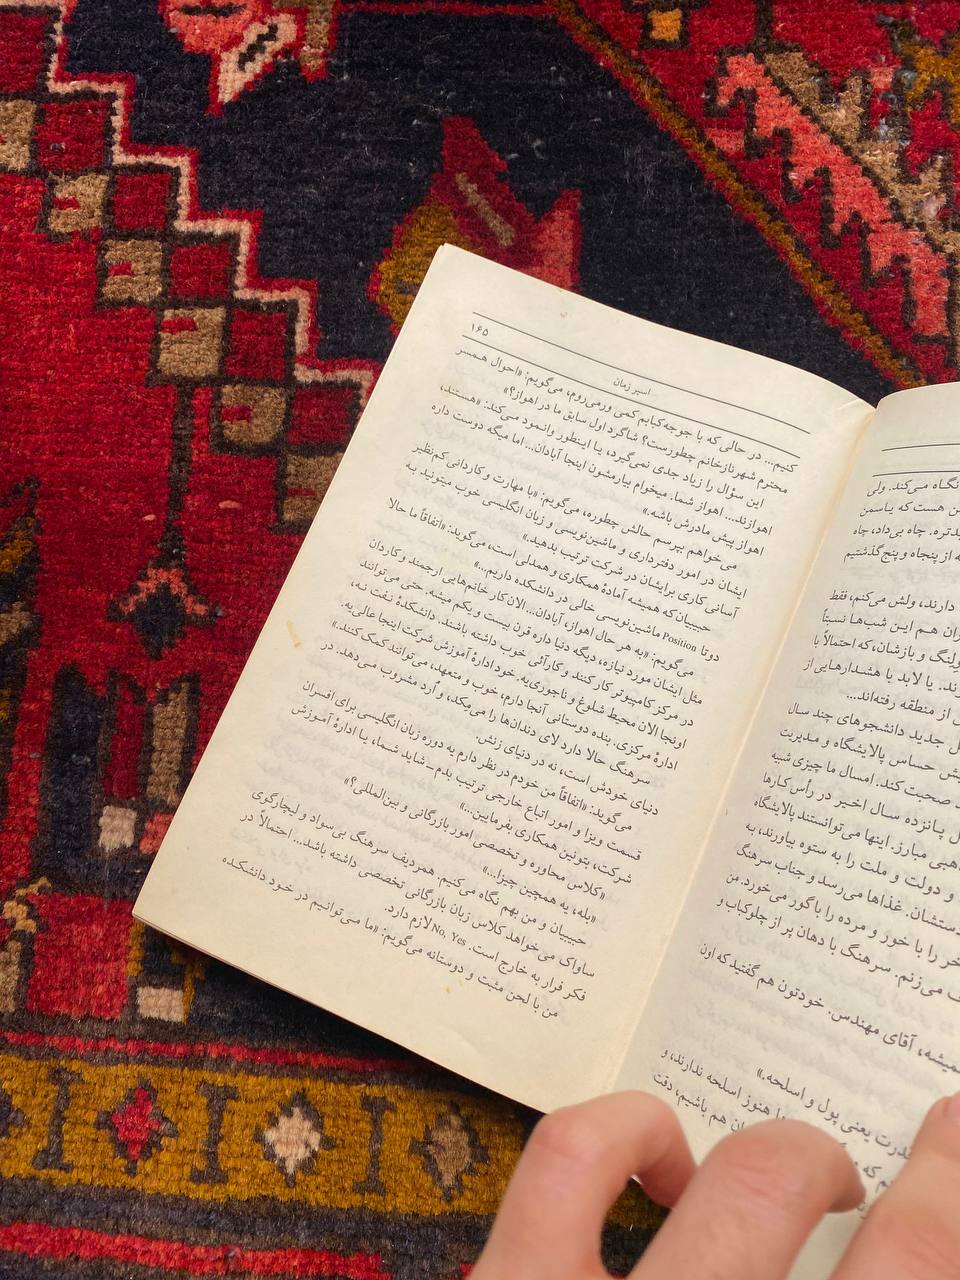 ۱۶۵
اسیر زمان
کنیم... در حالی که با جوجه‌کبابم کمی ورمی‌روم، می‌گویم: «احوال همسر
محترم شهرنازخانم چطورست؟ شاگرد اول سابق ما در اهواز؟»
این سؤال را زیاد جدی نمی‌گیرد، یا اینطور وانمود می‌کند: «هستند،
اهوازند... اهواز شما. میخوام بیارمشون اینجا آبادان... اما میگه دوست داره
اهواز پیش مادرش باشه.»
می‌خواهم بپرسم حالش چطوره، می‌گویم: «با مهارت و کاردانی کم‌نظیر
ایشان در امور دفترداری و ماشین‌نویسی و زبان انگلیسی خوب میتونید به
آسانی کاری برایشان در شرکت ترتیب بدهید.»
حبیبیان که همیشه آمادهٔ همکاری و همدلی است، می‌گوید: «اتفاقاً ما حالا
دوتا Position ماشین‌نویسی خالی در دانشکده داریم...»
می‌گویم: «به هر حال اهواز، آبادان... الان کار خانم‌هایی ارجمند و کاردان
مثل ایشان مورد نیازه، دیگه دنیا داره قرن بیست و یکم میشه. حتی می‌توانند
در مرکز کامپیوتر کار کنند و کارآئی خوب داشته باشند. دانشکدهٔ نفت نه،
اونجا الان محیط شلوغ و ناجوری‌یه. خود ادارهٔ آموزش شرکت اینجا عالی‌یه.
ادارهٔ مرکزی. بنده دوستانی آنجا دارم، خوب و متعهد، می‌توانند کمک کنند.»
سرهنگ حالا دارد لای دندان‌ها را می‌مکد، و آرد مشروب می‌دهد. در
دنیای خودش است، نه در دنیای زنش.
می‌گوید: «اتفاقاً من خودم در نظر دارم یه دوره زبان انگلیسی برای افسران
قسمت ویزا و امور اتباع خارجی ترتیب بدم ـ شاید شما، یا ادارهٔ آموزش
شرکت، بتونین همکاری بفرمایین...»
«کلاس محاوره و تخصصی امور بازرگانی و بین‌المللی؟»
«بله، یه همچین چیزا...»
حبیبیان و من بهم نگاه می‌کنیم. همردیف سرهنگ بی‌سواد و لیچارگوی
ساواک می‌خواهد کلاس زبان بازرگانی تخصصی داشته باشد... احتمالاً در
فکر فرار به خارج است. No, Yes لازم دارد.
من با لحن مثبت و دوستانه می‌گویم: «ما می‌توانیم در خود دانشکده
نگاه می‌کند. ولی
هست که یاسمن
از پنجاه و پنج گذشتیم
دارند، ولش می‌کنم، فقط
هم این شب‌ها نسبتاً
و بازشان، که احتمالاً با
یا لابد یا هشدارهایی از
از منطقه رفته‌اند...
جدید دانشجوهای چند سال
حساس پالایشگاه و مدیریت
صحبت کند. امسال ما چیزی شبیه
پانزده سال اخیر در رأس کارها
مبارز. اینها می‌توانستند پالایشگاه
و دولت و ملت را به ستوه بیاورند، به
غذاها می‌رسد و جناب سرهنگ
را با خور و مرده را با گور می‌خورد. من
می‌زنم. سرهنگ با دهان پر از چلوکباب و
آقای مهندس. خودتون هم گفتید که اون
یعنی پول و اسلحه.»
هنوز اسلحه ندارند، و
هم باشیم، دقت